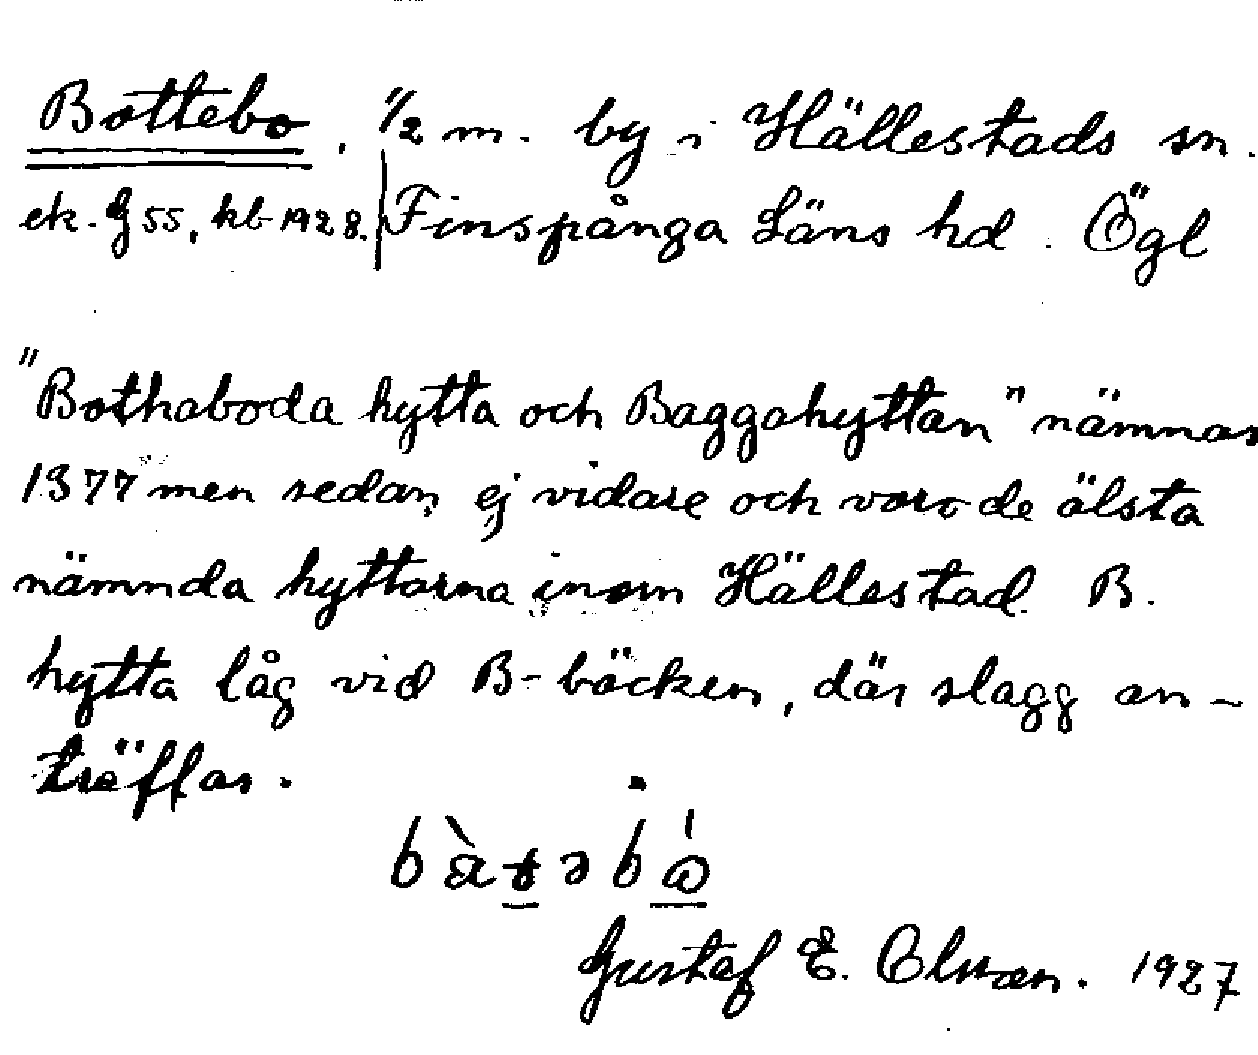 Bottebo, 1/2 m. by i Hällestads sn.
ek. G 55, kb 1928. Finspånga Läns hd. Ögl
"Bothaboda hytta och Baggahyttan" nämnas
1377 men sedan ej vidare och voro de älsta
nämnda hyttorna inom Hällestad. B.
hytta låg vid B-bäcken, där slagg an-
träffas.
Gustaf E. 1927